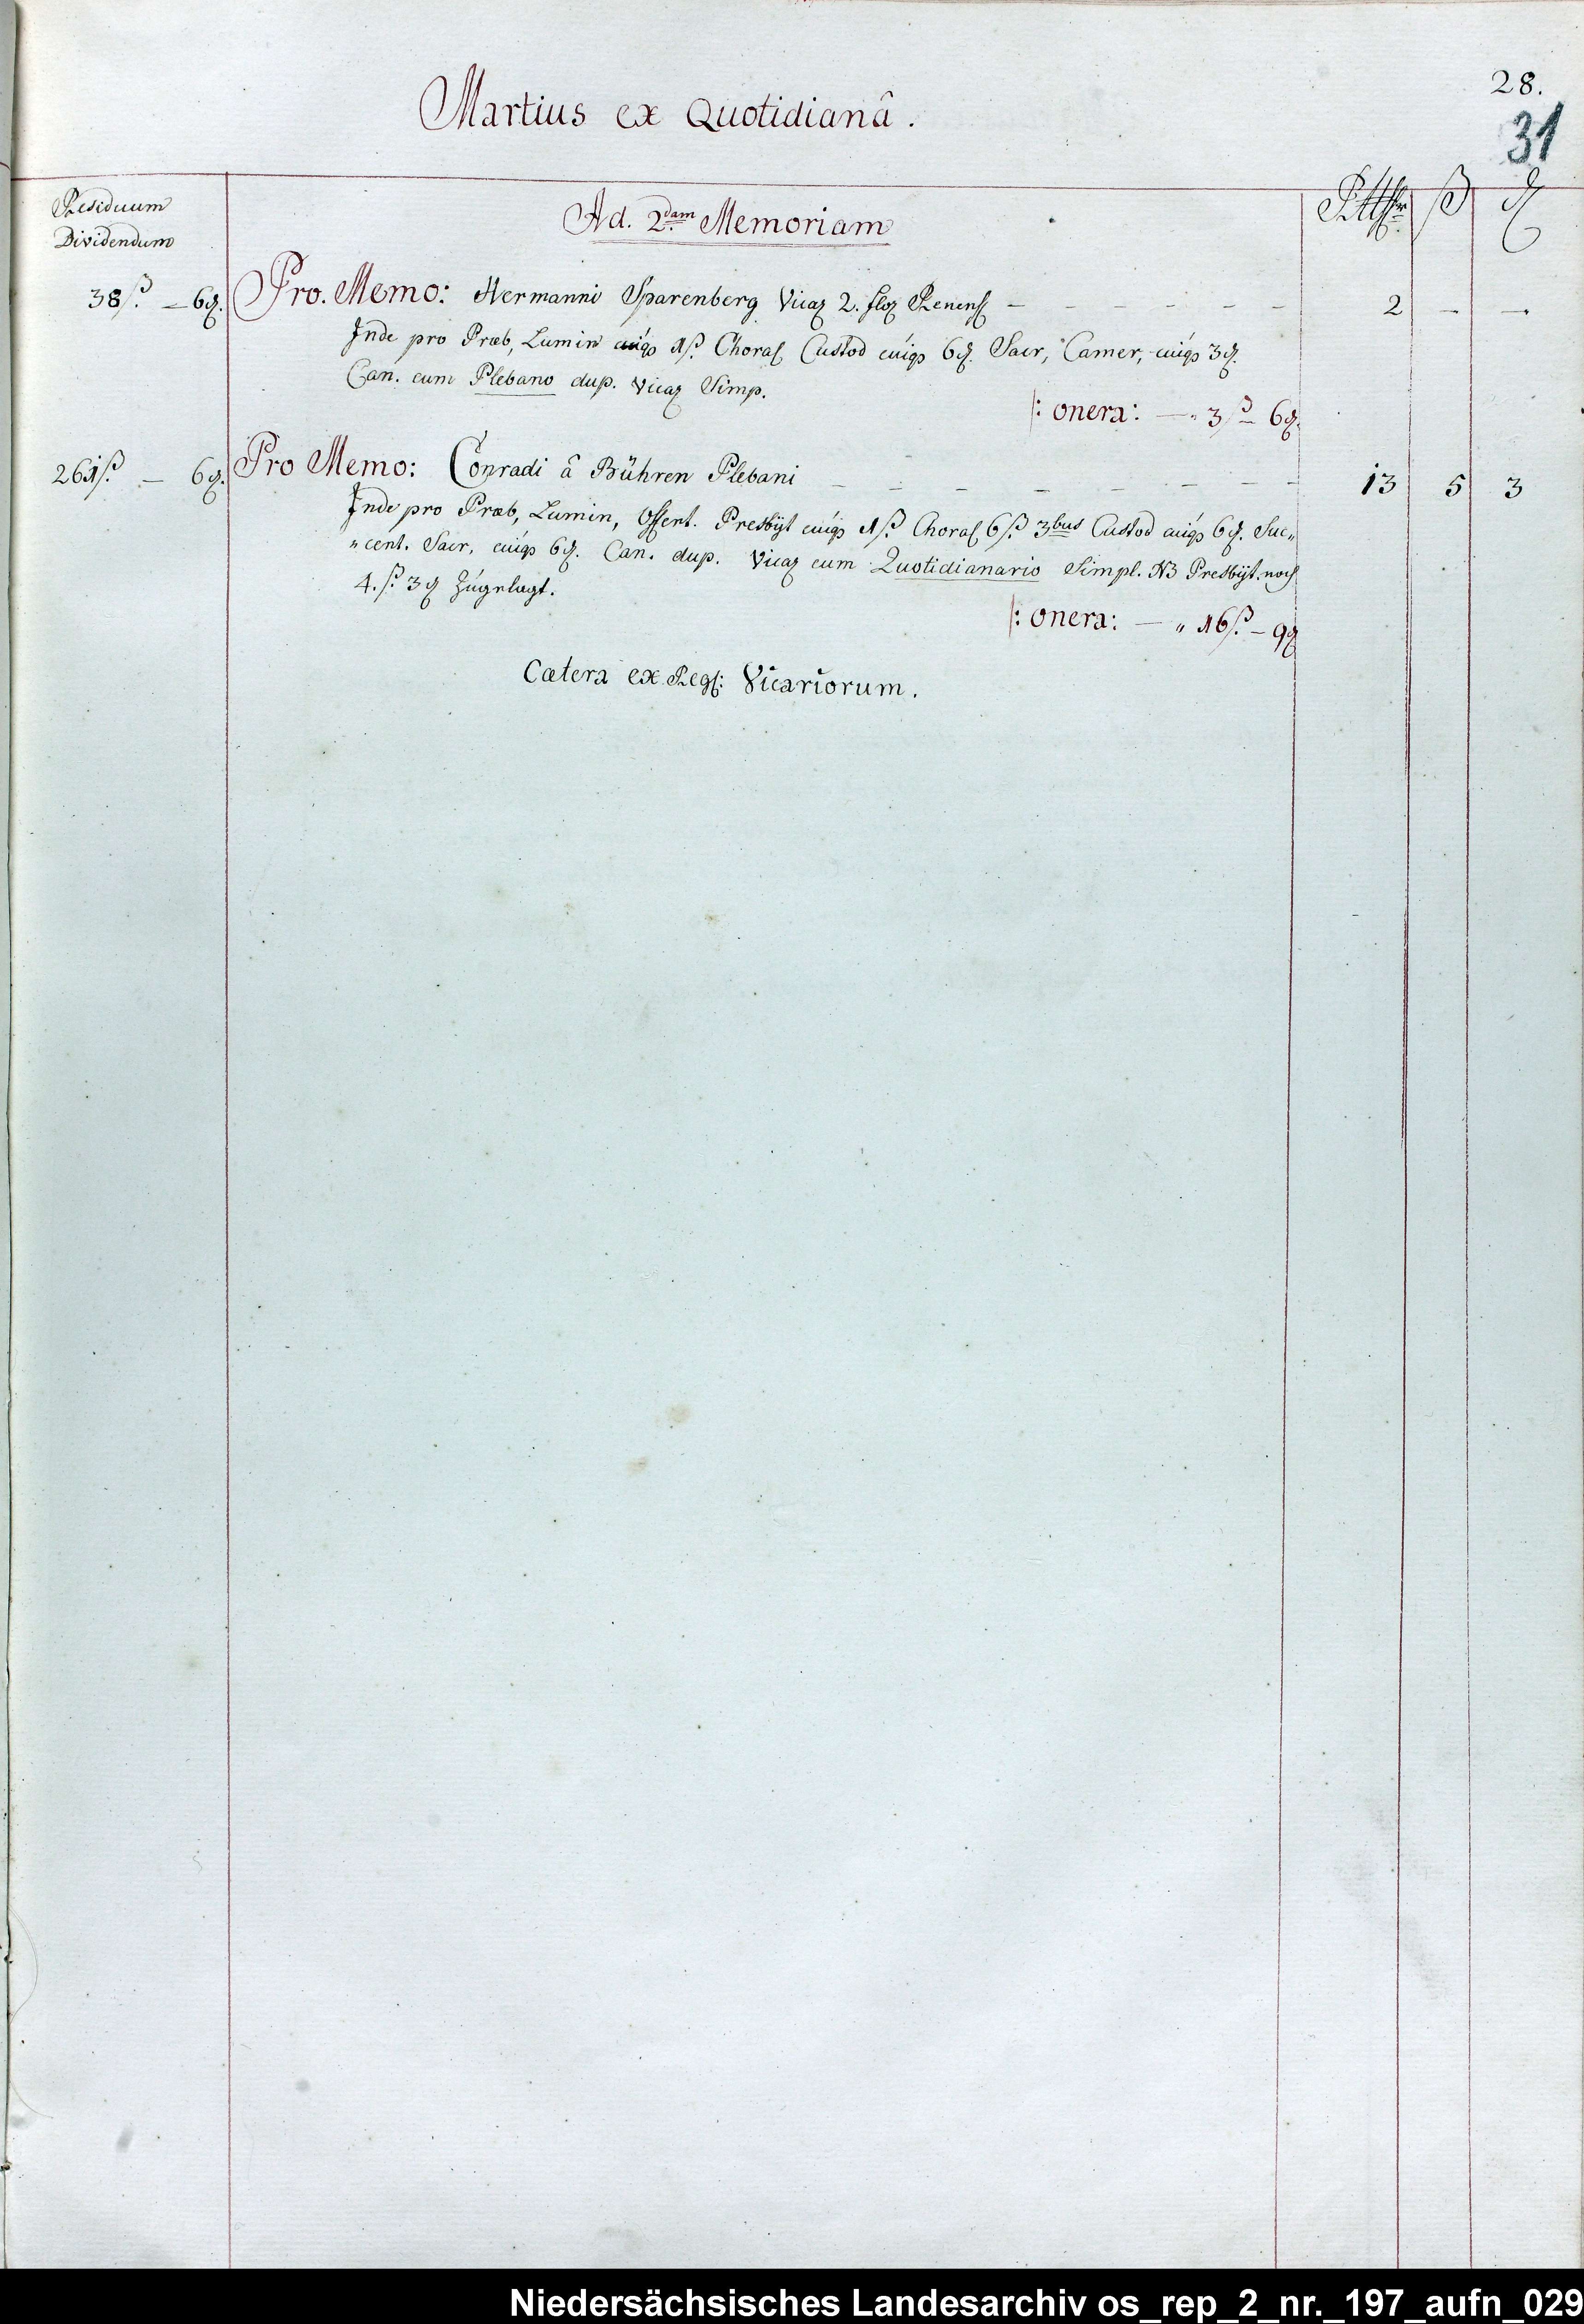 28.
31
Martius ex Quotidianâ.
Residuum
Dividendum
Ad. 2dam Memoriam
Rtthlr ß ₰
38 ß. — 6 ₰. Pro. Memo: Hermanni Sparenberg Vicar 2. flor Renens — — — — — — 2 — —
Inde pro Præb, Lumin cuigs 1 ß. Choral Custod cuigs 6 ₰. Sacr, Camer, cuigs 3 ₰.
Can. cum Plebano dup. Vicar Simp.
|: onera: — „ 3 ß — 6 ₰.
261 ß. — 6 ₰. Pro Memo: Conradi â Bühren Plebani — — — — — — — — 13 5 3
Inde pro Præb, Lumin, Offert. Presbÿt cuigs 1 ß. Choral 6 ß. 3bus Custod cuigs 6 ₰. Suc„
„cent. Sacr, cuigs 6 ₰. Can. dup. Vicar cum Quotidianario Simpl. NB Presbÿt. noch
4. ß. 3 ₰ Zugelagt.
|: onera: — „ 16 ß. — 9 ₰
Cætera ex Regs: Vicariorum.
Niedersächsisches Landesarchiv os_rep_2_nr._197_aufn_029